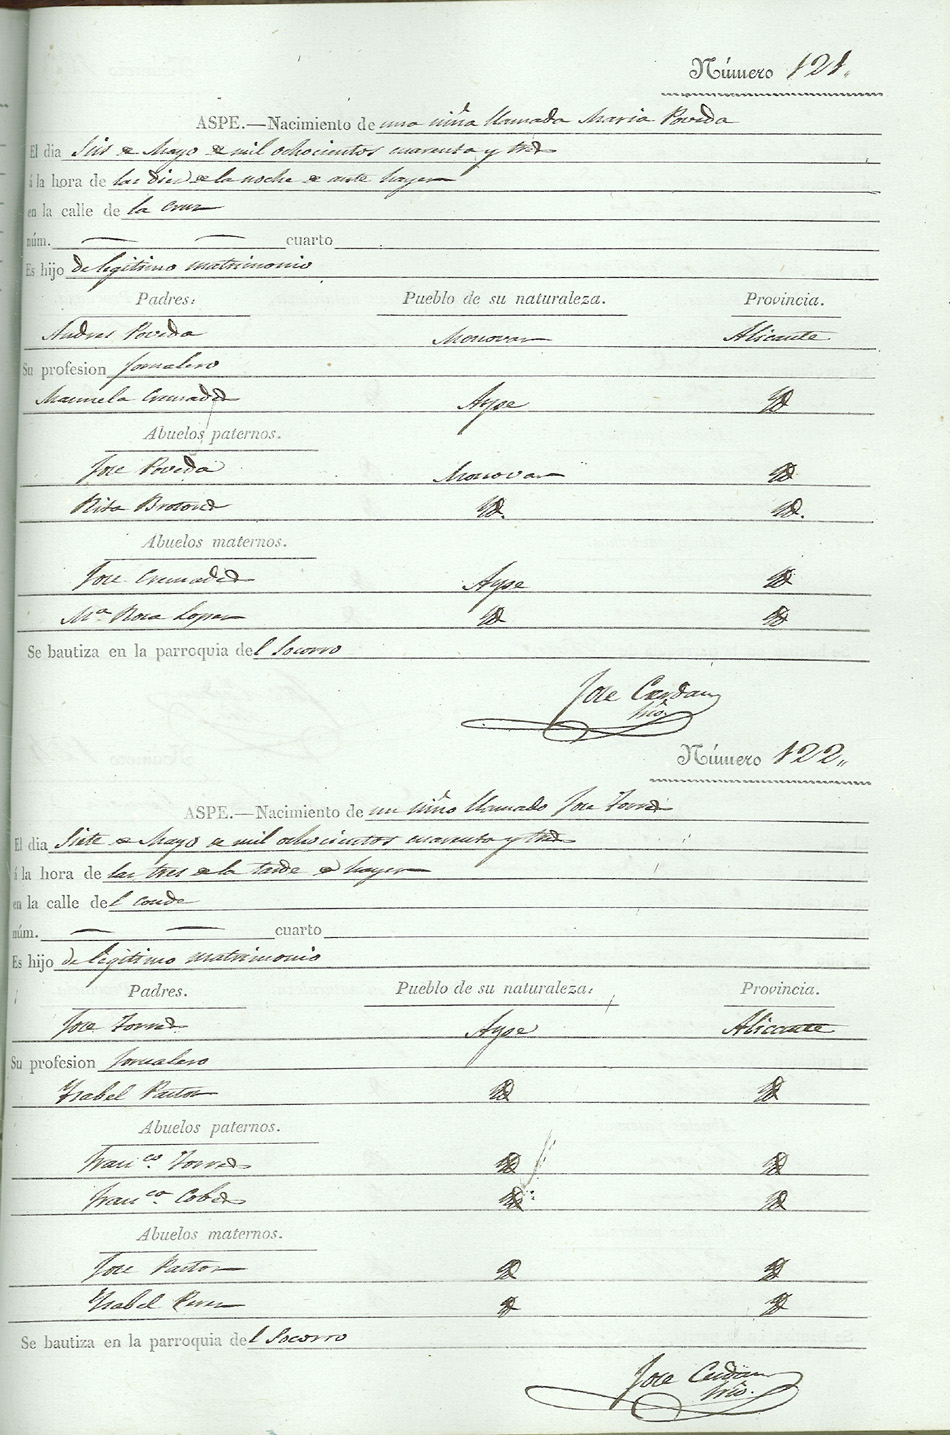 Número 121.
ASPE.—Nacimiento de una niña llamada Maria Poveda
El dia Seis de Mayo de mil ochocientos cuarenta y tres
á la hora de las diez de la noche de ante hayer
en la calle de la Cruz
núm. — — cuarto
Es hijo de legitimo matrimonio
Padres: Pueblo de su naturaleza. Provincia.
Andres Poveda Monovar Alicante
Su profesion Jornalero
Manuela Cremades Aspe Yd
Abuelos paternos.
Jose Poveda Monovar Yd
Rita Brotons Yd. Yd.
Abuelos maternos.
Jose Cremades Aspe Yd
Mª Rosa Lopez Yd Yd
Se bautiza en la parroquia del Socorro
Jose Cerdan
Srio.
Número 122.
ASPE.—Nacimiento de un niño llamado Jose Torres
El dia Siete de Mayo de mil ochocientos cuarenta y tres
á la hora de las tres de la tarde de hayer
en la calle del Conde
núm. — — cuarto
Es hijo de legitimo matrimonio
Padres. Pueblo de su naturaleza: Provincia.
Jose Torres Aspe Alicante
Su profesion Jornalero
Ysabel Pastor Yd Yd
Abuelos paternos.
Franco. Torres Yd Yd
Franca. Cobes Yd Yd
Abuelos maternos.
Jose Pastor Yd Yd
Ysabel Perez Yd Yd
Se bautiza en la parroquia del Socorro
Jose Cerdan
Srio.